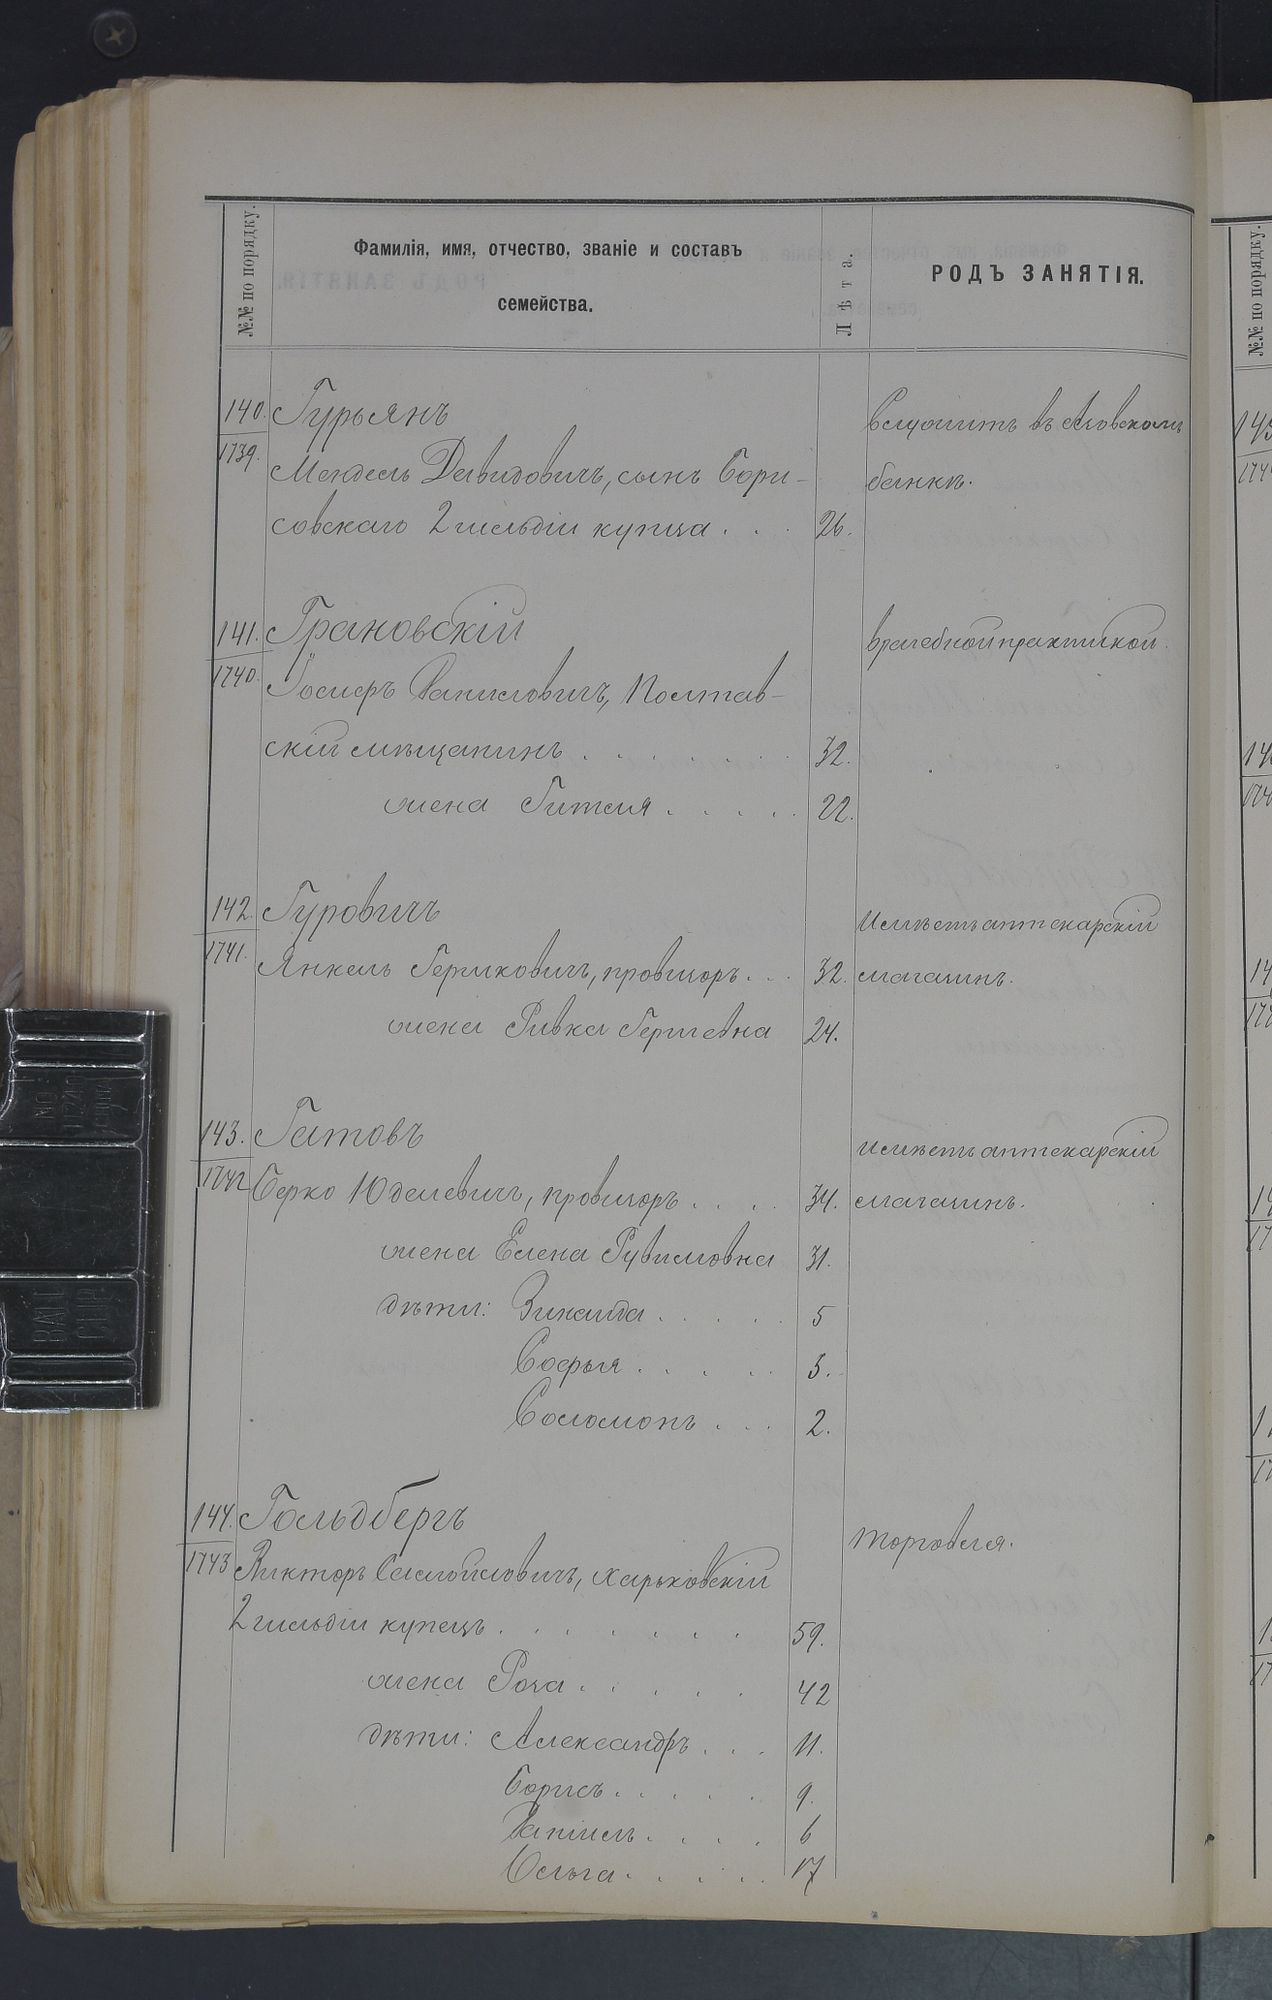 №№ по порядку.
Фамилія, имя, отчество, званіе и составъ
семейства.
Лѣта.
РОДЪ ЗАНЯТІЯ.
№№ по порядку.
140. Гурьянъ
1739. Мендель Давидовичъ, сынъ Бори-
совскаго 2 гильдіи купца . . . 26.
Служитъ въ Азовскомъ
банкѣ.
141. Грановскій
1740. Іосифъ Даниловичъ, Полтав-
скій мѣщанинъ . . . . . . . 32.
жена Гитля . . . . . 22.
врачебной практикой.
142. Гуровичъ
1741. Янкель Гершковичъ, провизоръ . . . 32.
жена Ривка Гершевна 24.
Имѣетъ аптекарскій
магазинъ.
143. Гатовъ
1742 Берко Юделевичъ, провизоръ . . . . 34.
жена Елена Рувимовна 31.
дѣти: Зинаида . . . . . 5
Софья . . . . . 3.
Соломонъ . . . 2.
Имѣетъ аптекарскій
магазинъ.
144. Гольдбергъ
1743 Викторъ Самойловичъ, Харьковскій
2 гильдіи купецъ . . . . . . . 59.
жена Роза . . . . . 42
дѣти: Александръ . . . 11.
Борисъ . . . . . 9.
Даніилъ . . . . 6
Ольга . . . . . 17
торговля.
NO.
BALL
CLIP